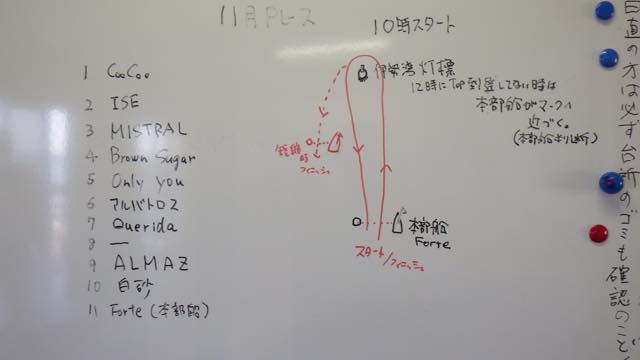 11月Pレース
10時スタート
1 CooCoo
2 ISE
3 MISTRAL
4 Brown Sugar
5 Only you
6 アルバトロス
7 Querida
8 ー
9 ALMAZ
10 白砂
11 Forte (本部船)
伊勢湾灯標
12時にTop到達してない時は
本部船がマークへ
近づく。
(本部船判断)
短縮
時
フィニッシュ
本部船
Forte
スタート/フィニッシュ
日直の方は必ず台所のゴミも確認のこと